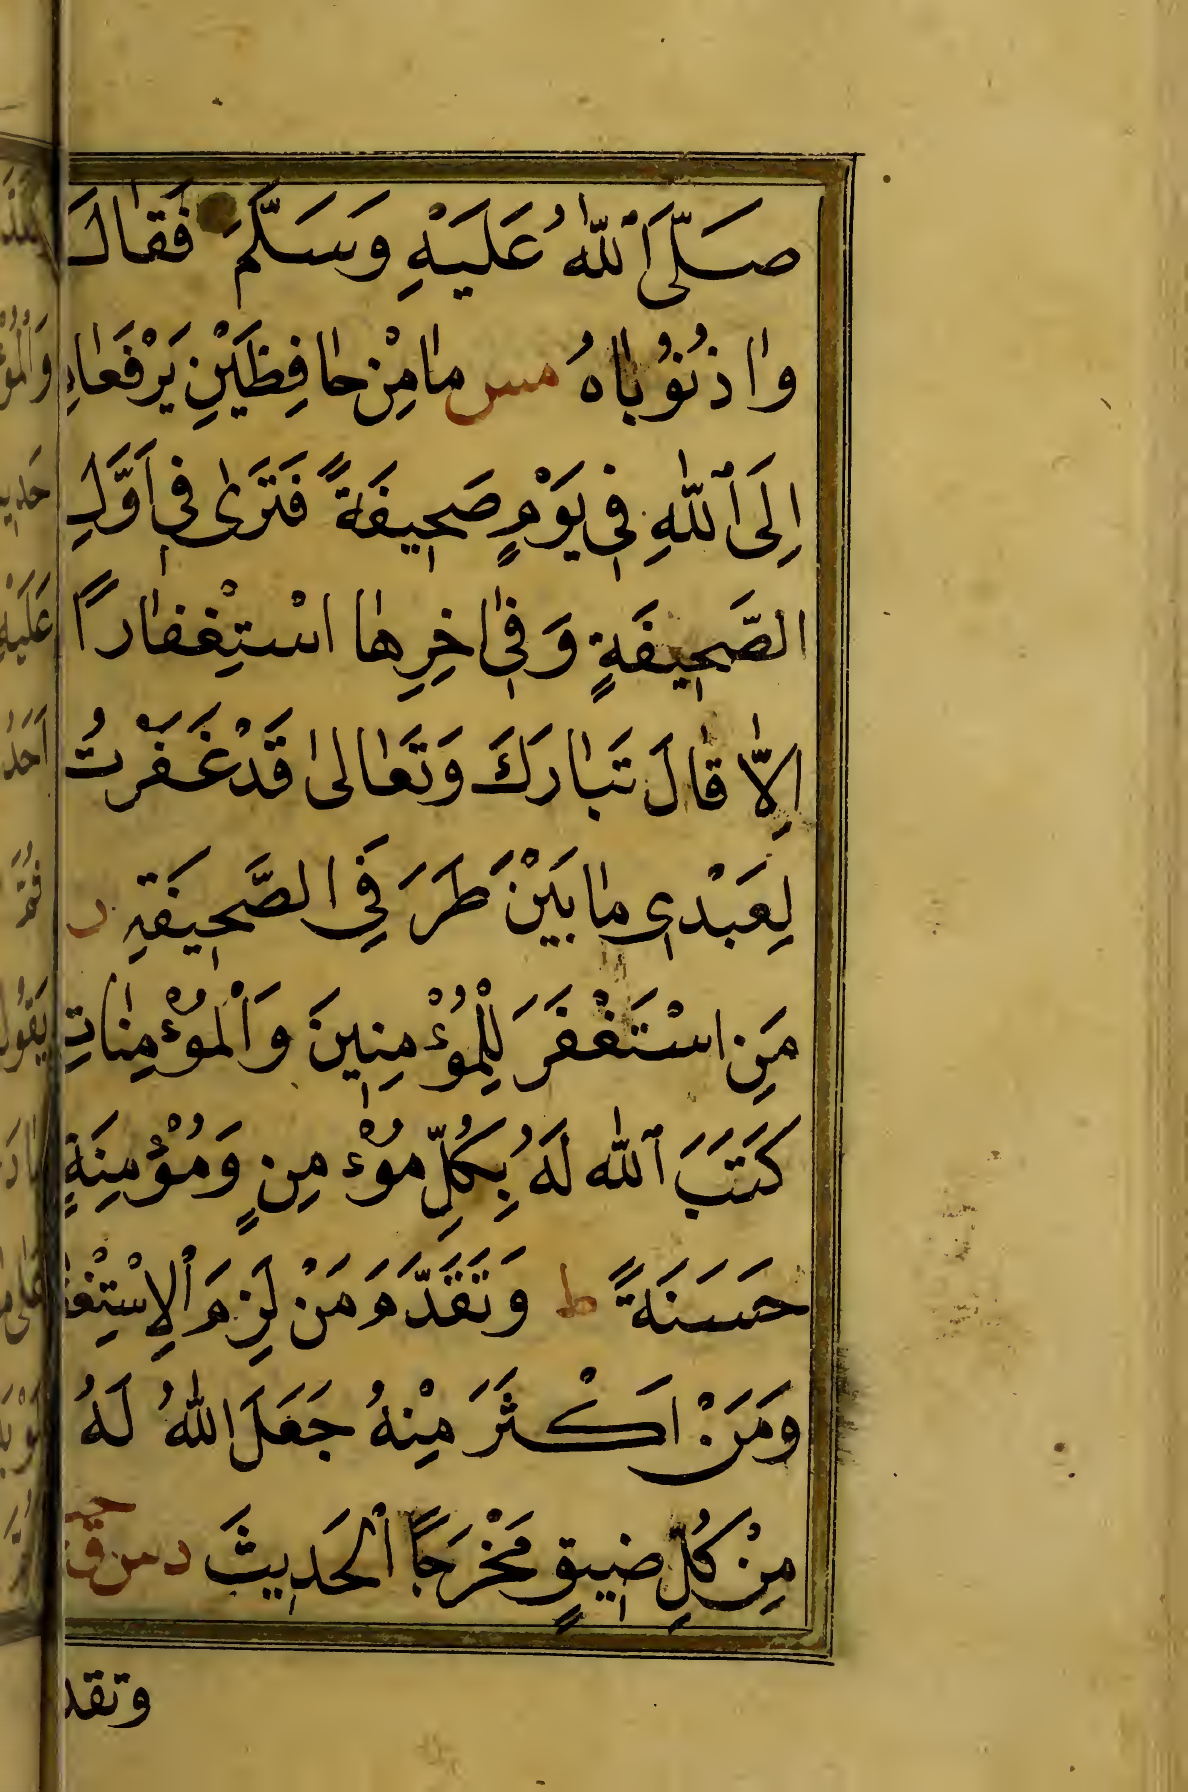 صَلَّى اَللّٰهُ عَلَيْهِ وَسَلَّمَ فَقٰالَ
وٰا ذُنُوُبٰاهُ مس مٰا مِنْ حٰا فِظَيْنِ يَرْفَعٰانِ
اِلَى اَللّٰهِ فِى يَوْمٍ صَحِيفَةً فَتَرٰى فِى اَوَّلِ
الصَّحِيفَةٍ وَ فِى اٰخِرِهٰا اسْتِغْفٰاراً
اِلاّٰ قٰالَ تَبٰارَكَ وَتَعٰالىٰ قَدْ غَفَرْتُ
لِعَبْدِى مٰا بَيْنَ طَرَ فَىِ الصَّحِيفَةِ ر
مَنِ اسْتَغْفَرَ لِلْمُوْءْمِنِينَ وَاَلْمُوْءْمِنٰاتِ
كَتَبَ اَللّٰه لَهُ بِكُلِّ مُوْءْ مِنٍ وَمُوْءْمِنَةٍ
حَسَنَةً ط وَ تَقَدَّمَ مَنْ لَزِمَ اَلاِسْتِغْفٰا
وَمَنْ اَكْثَرَ مِنْهُ جَعَلَ اللّٰهُ لَهُ
مِنْ كُلِّ ضِيقٍ مَخْرَجاً اَلْحَدِيثَ د س ق حب
وتقد